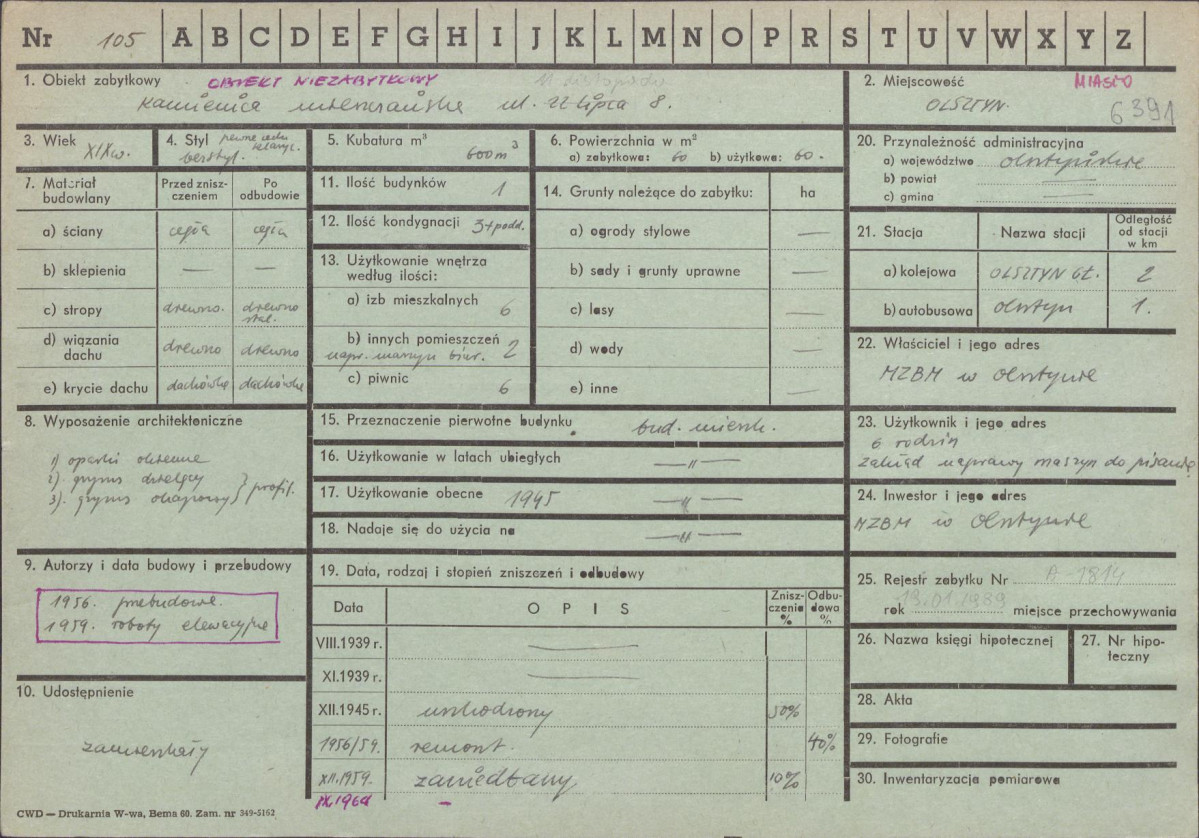 Nr 105 A B C D E F G H I J K L M N O P R S T U V W X Y Z
1. Obiekt zabytkowy OBIEKT NIEZABYTKOWY 11 listopada
Kamienica mieszczańska ul. 22 Lipca 8.
2. Miejscowość MIASTO
OLSZTYN. 6391
3. Wiek
XIXw.
4. Styl pewne cechy
bezstyl.
5. Kubatura m³
600 m³
6. Powierzchnia w m²
a) zabytkowa: 60 b) użytkowa: 60.
7. Materiał budowlany
Przed zniszczeniem
Po odbudowie
a) ściany cegła cegła
b) sklepienia — —
c) stropy drewno. drewno stal.
d) wiązania dachu drewno drewno
e) krycie dachu dachówka dachówka
8. Wyposażenie architektoniczne
1) opaski okienne
2). gzyms dzielący
3). gzyms okapowy } profil.
9. Autorzy i data budowy i przebudowy
1956. przebudowa.
1959. roboty elewacyjne
10. Udostępnienie
zamieszkały
11. Ilość budynków 1
12. Ilość kondygnacji 3+podd.
13. Użytkowanie wnętrza
według ilości:
a) izb mieszkalnych 6
b) innych pomieszczeń
napr. maszyn biur. 2
c) piwnic 6
14. Grunty należące do zabytku: ha
a) ogrody stylowe —
b) sady i grunty uprawne —
c) lasy —
d) wody —
e) inne —
15. Przeznaczenie pierwotne budynku bud. mieszk.
16. Użytkowanie w latach ubiegłych —"—
17. Użytkowanie obecne 1945 —"—
18. Nadaje się do użycia na —"—
19. Data, rodzaj i stopień zniszczeń i odbudowy
Data OPIS Zniszczenia % Odbudowa %
VIII.1939 r. —
XI.1939 r. —
XII.1945 r. uszkodzony 50%
1956/59. remont. 40%
XII.1959. zaniedbany 10%
IX.1960 –
20. Przynależność administracyjna
a) województwo olsztyńskie
b) powiat —
c) gmina —
21. Stacja Nazwa stacji Odległość od stacji w km
a) kolejowa OLSZTYN Gł. 2
b) autobusowa Olsztyn 1.
22. Właściciel i jego adres
MZBM w Olsztynie
23. Użytkownik i jego adres
6 rodzin
zakład naprawy maszyn do pisania
24. Inwestor i jego adres
MZBM w Olsztynie
25. Rejestr zabytku Nr A-1814
rok 13.01.1989 miejsce przechowywania
26. Nazwa księgi hipotecznej
27. Nr hipoteczny
28. Akta
29. Fotografie
30. Inwentaryzacja pomiarowa
CWD — Drukarnia W-wa, Bema 60. Zam. nr 349-5162